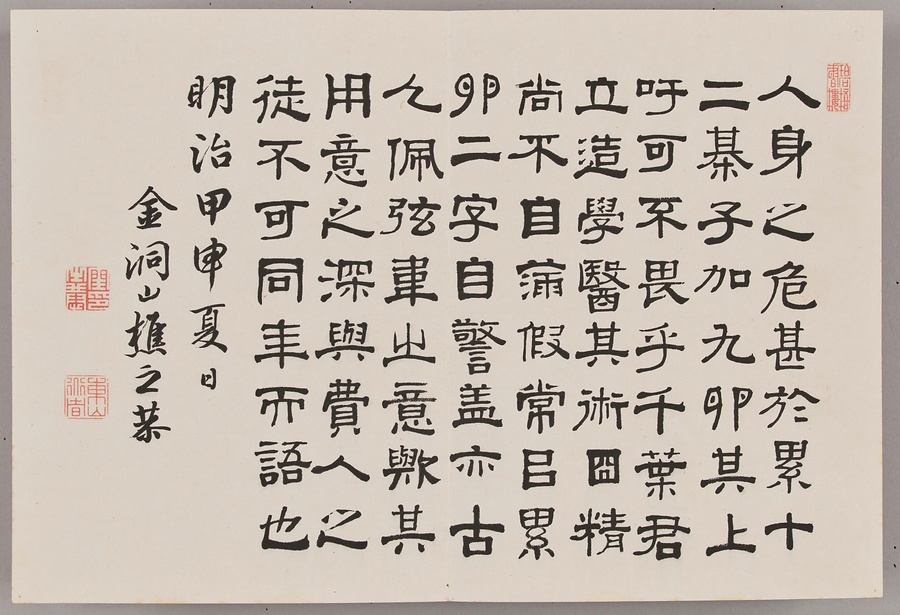 人身之危甚於累十
二棊子加九卵其上
吁可不畏乎千葉君
立造學醫其術固精
尚不自滿假常㠯累
卵二字自警盖亦古
人佩弦韋之意歟其
用意之深與費人之
徒不可同年而語也
明治甲申夏日
金洞山樵之恭